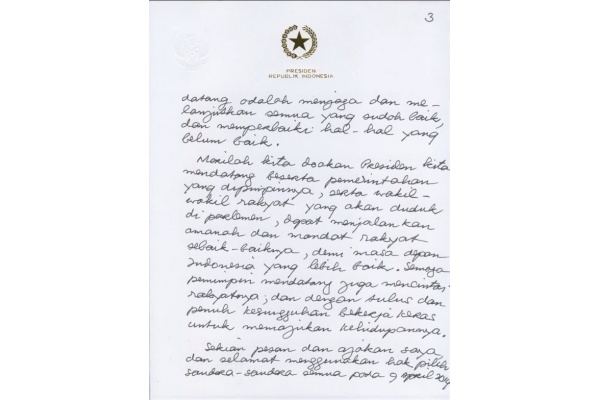 3
PRESIDEN
REPUBLIK INDONESIA
datang adalah menjaga dan me-
lanjutkan semua yang sudah baik,
dan memperbaiki hal-hal yang
belum baik.
Marilah kita doakan Presiden kita
mendatang beserta pemerintahan
yang dipimpinnya, serta wakil-
wakil rakyat yang akan duduk
di parlemen, dapat menjalankan
amanah dan mandat rakyat
sebaik-baiknya, demi masa depan
Indonesia yang lebih baik. Semoga
pemimpin mendatang juga mencintai
rakyatnya, dan dengan tulus dan
penuh kesungguhan bekerja keras
untuk memajukan kehidupannya.
Sekian pesan dan ajakan saya
dan selamat menggunakan hak pilih
saudara-saudara semua pada 9 April 2014